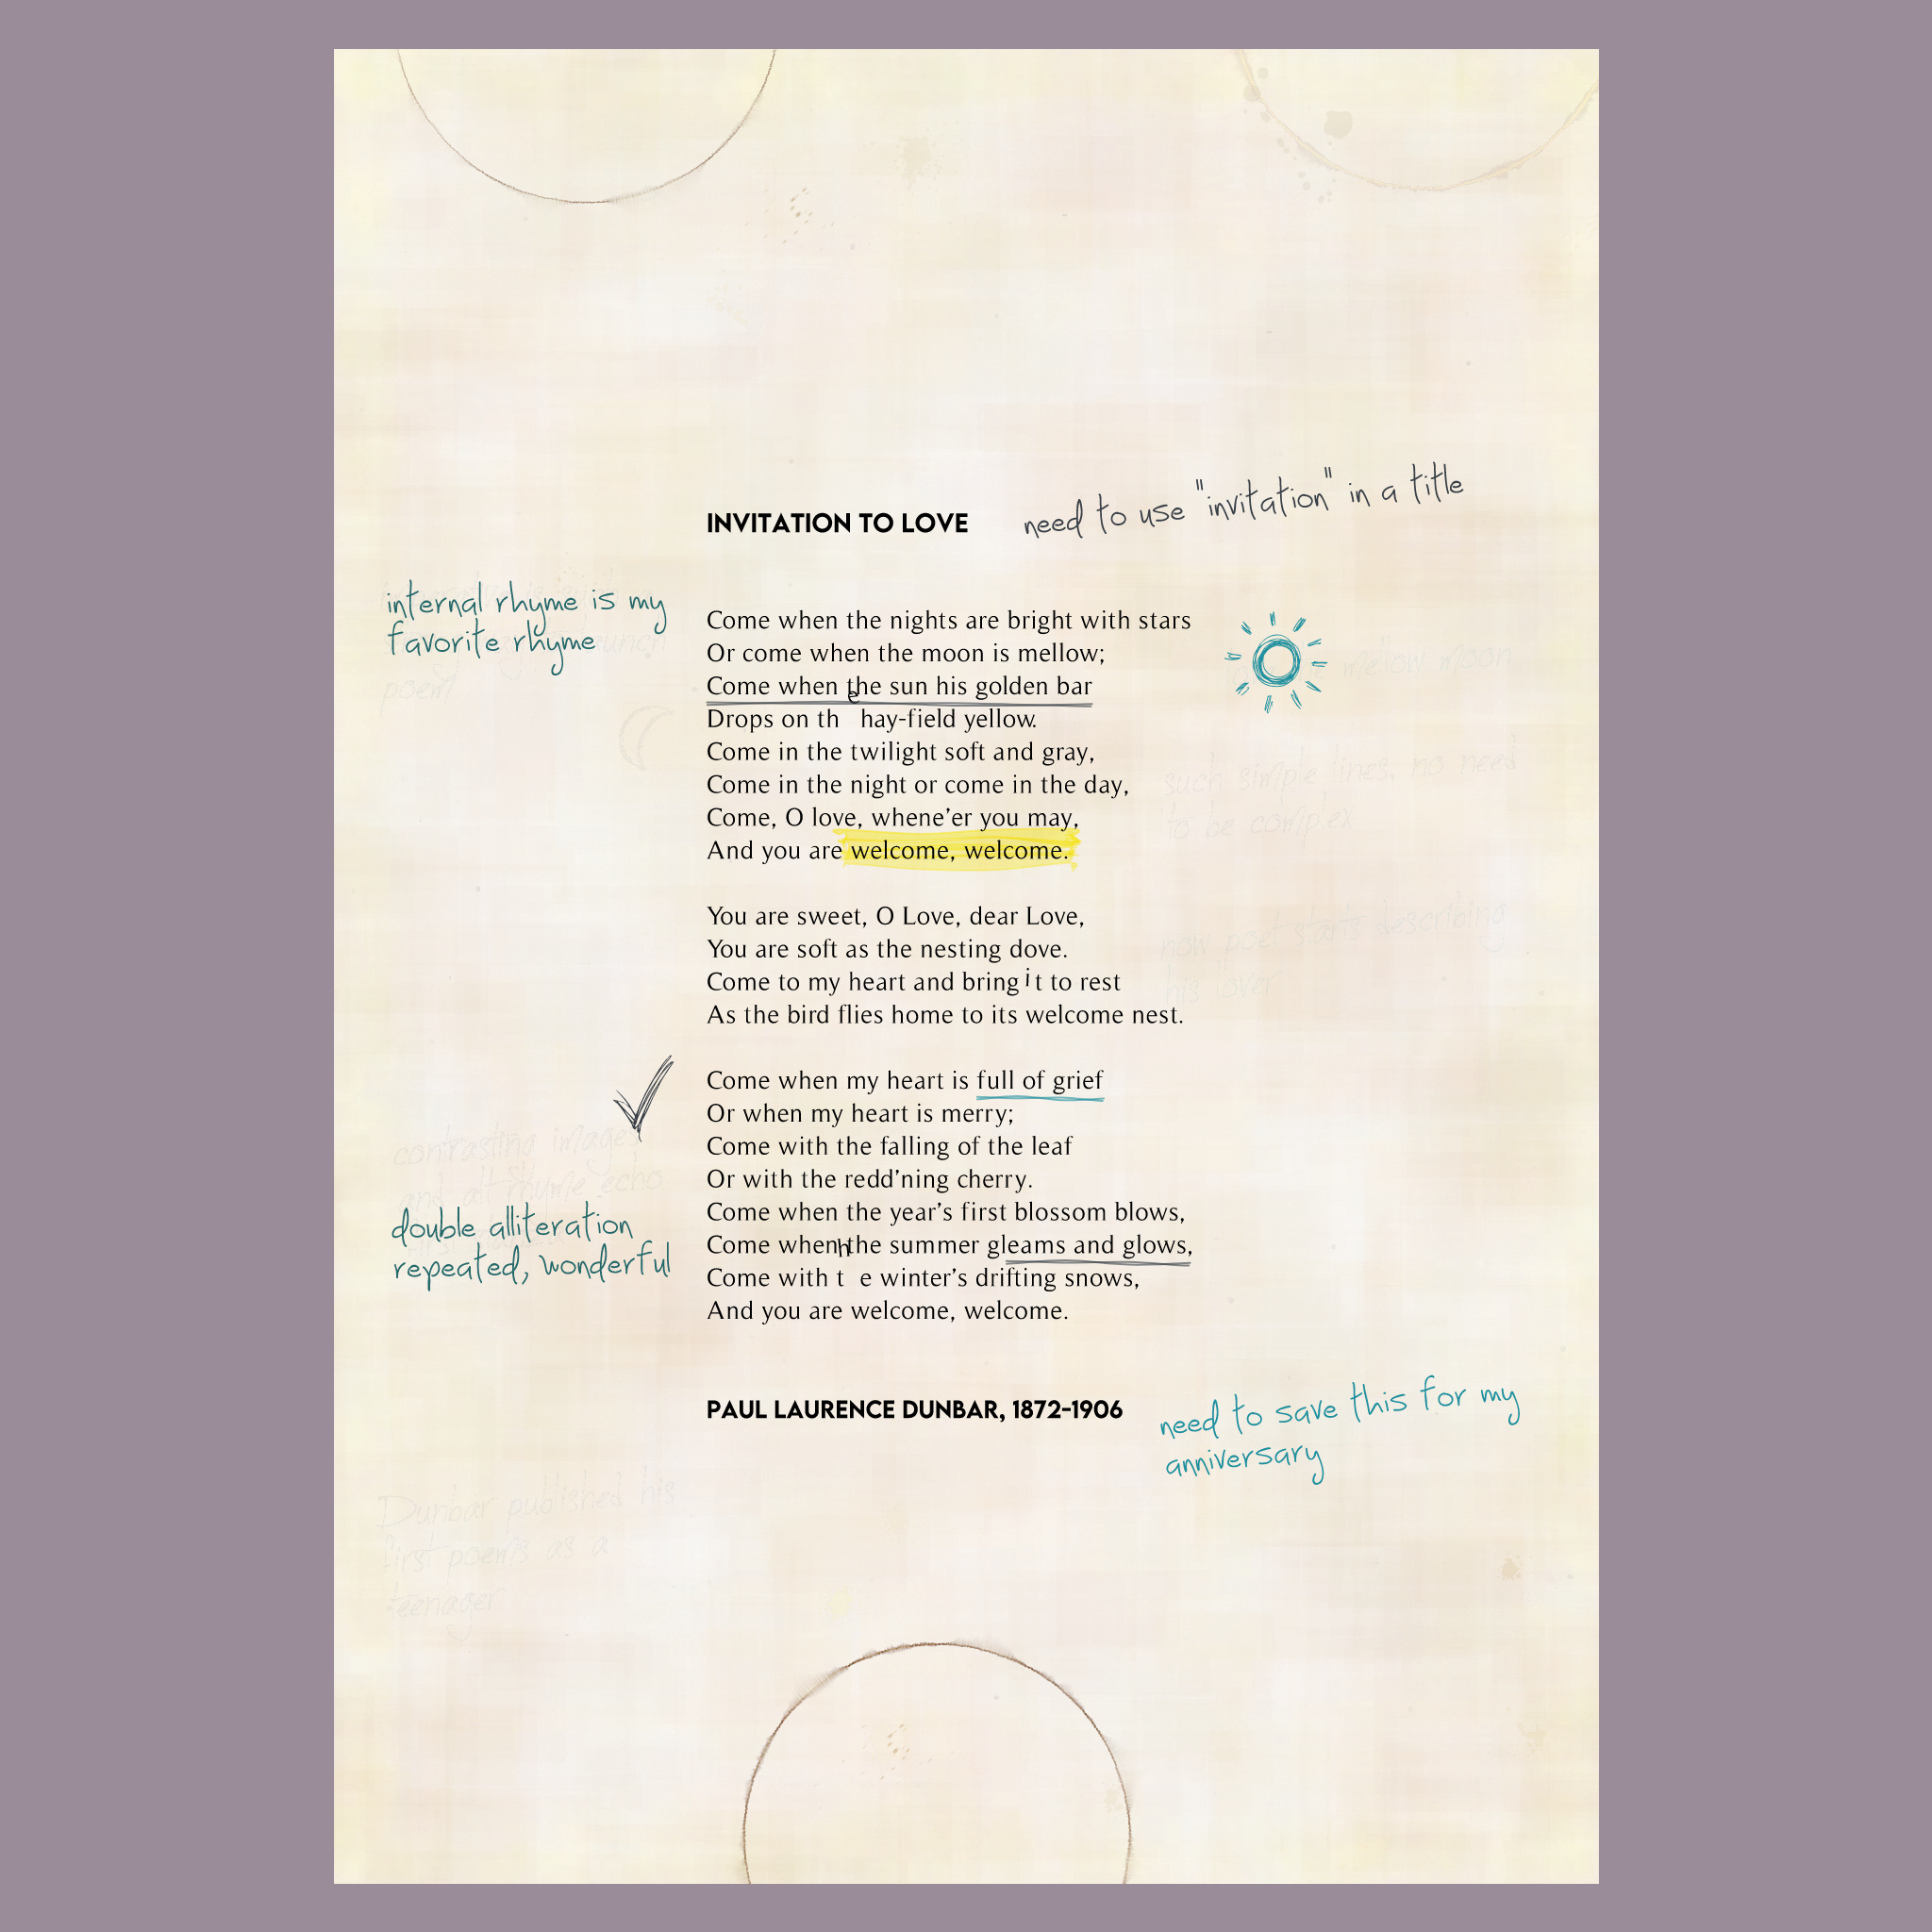 INVITATION TO LOVE
need to use "invitation" in a title
internal rhyme is my
favorite rhyme
poem
mellow moon
Come when the nights are bright with stars
Or come when the moon is mellow;
Come when the sun his golden bar
Drops on the hay-field yellow.
Come in the twilight soft and gray,
Come in the night or come in the day,
Come, O love, whene’er you may,
And you are welcome, welcome.
such simple lines, no need
to be complex
You are sweet, O Love, dear Love,
You are soft as the nesting dove.
Come to my heart and bring it to rest
As the bird flies home to its welcome nest.
now poet starts describing
his lover
Come when my heart is full of grief
Or when my heart is merry;
Come with the falling of the leaf
Or with the redd’ning cherry.
Come when the year’s first blossom blows,
Come when the summer gleams and glows,
Come with the winter’s drifting snows,
And you are welcome, welcome.
contrasting images
and rhyme echo
first
double alliteration
repeated, wonderful
PAUL LAURENCE DUNBAR, 1872-1906
need to save this for my
anniversary
Dunbar published his
first poems as a
teenager